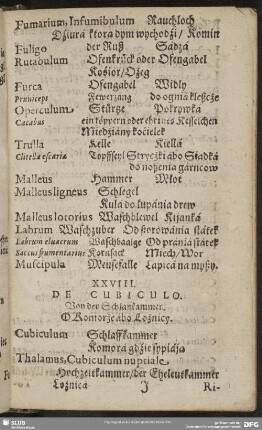 Fumarium, Infumibulum Rauchloch
Dziura ktora dym wychodzi / Komin
Fuligo der Ruß Sadza
Rutabulum Ofenkrück oder Ofengabel
Kosior / Ożeg
Furca Ofengabel Widły
Pruniceps Fewerzang do ognia kleszcze
Operculum Stürtze Pokrywka
Cacabus ein küppern oder ehrines Kesselchen
Miedziany kociełek
Trulla Kelle Kiella
Clitella escaria Topffseyl Stryczki abo Siadka
do noszenia garncow
Malleus Hammer Młot
Malleus ligneus Schlegel
Kula do łupania drew
Malleus lotorius Waschblewel Kijanka
Labrum Waschzuber
Labrum eluacrum Od prania
Saccus frumentarius Kornsack Miech / Wor
Muscipula Meusefalle Łapica na myszy.
XXVIII.
DE CUBICULO.
Von der Schlaffkammer.
O Komorze abo Łożnicy.
Cubiculum Schlaffkammer
Komora gdzie sypiają
Thalamus, Cubiculum nuptiale
Hochzeitkammer / der Eheleutkammer
Łożnica J Ri-
SLUB
DFG